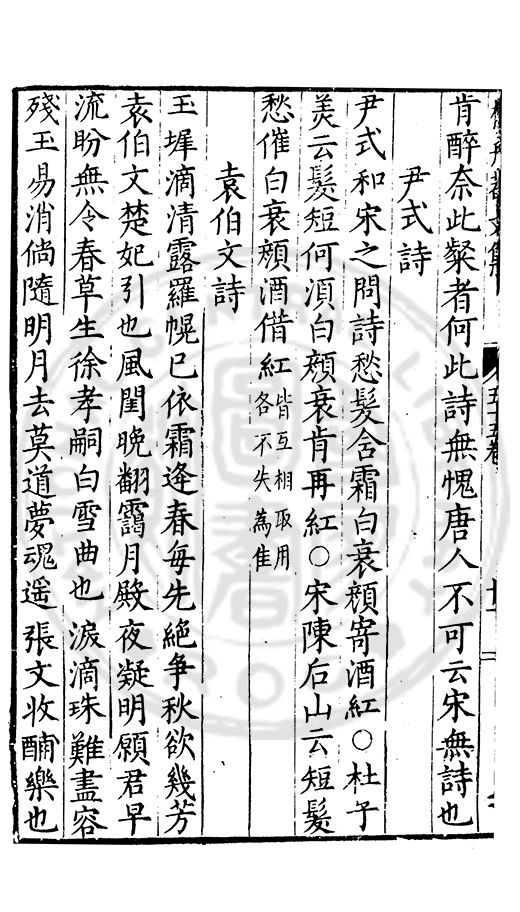 肯醉奈此粲者何此詩無愧唐人不可云宋無詩也
尹式詩
尹式和宋之問詩愁髮含霜白衰顏寄酒紅○杜子
美云髮短何須白顏衰肯再紅○宋陳后山云短髮
愁催白衰顏酒借紅皆互相取用各不失爲佳
袁伯文詩
玉墀滴清露羅幌已依霜逢春每先絶爭秋欲幾芳
袁伯文楚妃引也風閨晚翻靄月殿夜凝明願君早
流盼無令春草生徐孝嗣白雪曲也淚滴珠難盡容
殘玉易消倘隨明月去莫道夢魂遥張文收酺樂也
五十五卷